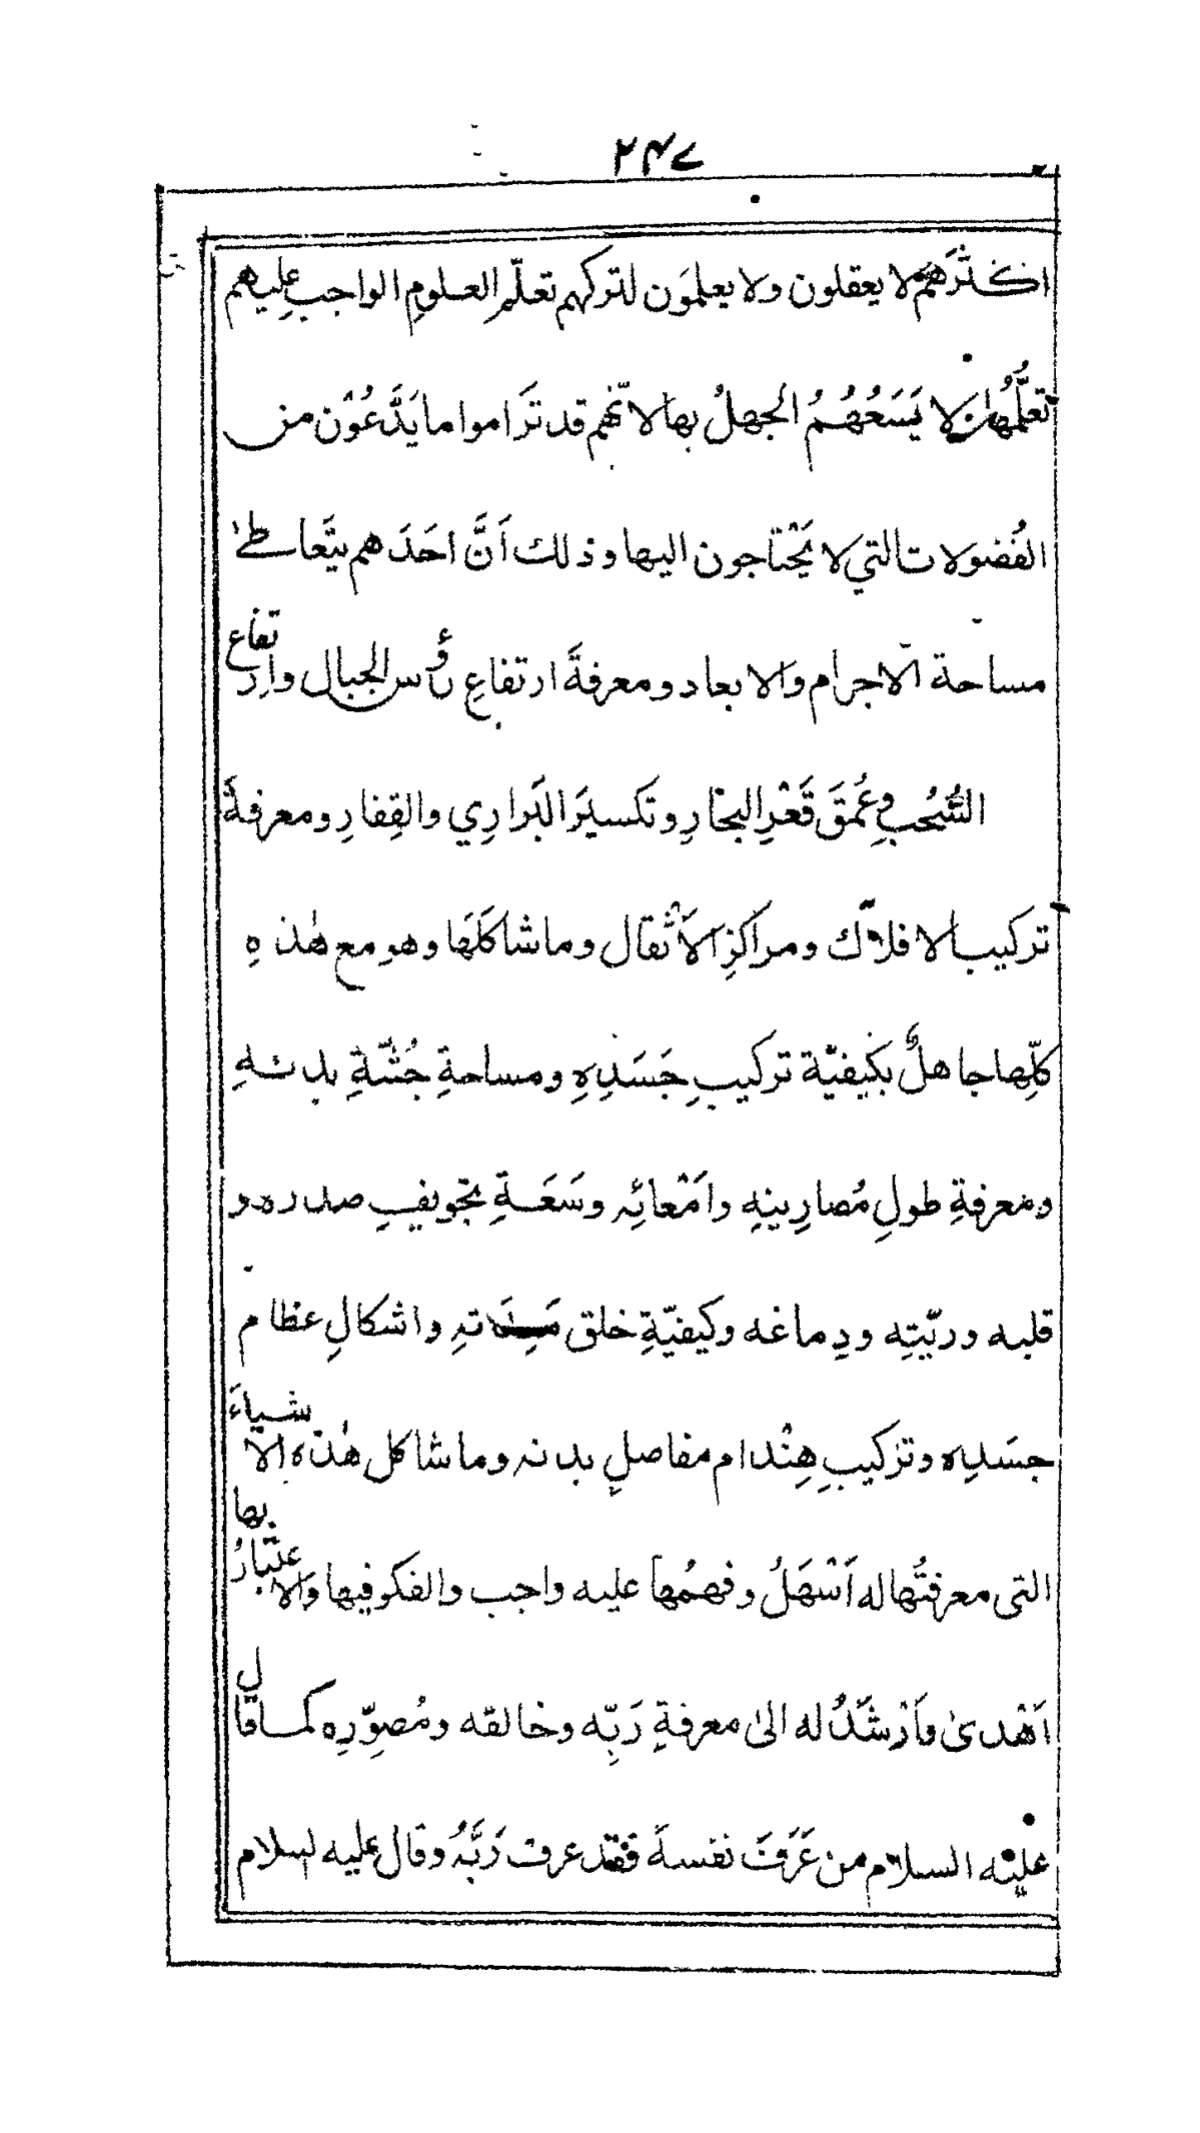 ۲۴۷
اكثرَهم لا يعقلون ولا يعلمَون لتركهم تعلّم العلومِ الواجبِ عليهم
تعلُّمُها لا يَسَعُهُمُ الجهلُ بها لانّهم قد تَرَاموا ما يَدَّعُوْن من
الفُضولات التي لا يَحْتاجون اليها وذلك اَنَّ احَدَهم يتَّعاطىٰ
مساحة الاجرام والابعاد ومعرفةَ ارتفاعِ رؤس الجبال وارتفاع
السُّحُبِ وعُمقَ قَعْرِ البحارِ وتكسيرَ البَرارِي والقِفارِ ومعرفةَ
تركيب الافلاك ومراكزِ الاَثْقال وما شاكَلَها وهو مع هٰذهِ
كلِّها جاهلٌ بكَيفيّة تركيبِ جَسَدِهِ ومساحةِ جُثّةِ بدنهِ
ومعرفةِ طولِ مُصارِينهِ وامْعائِه وسَعَةِ تجويفِ صدره و
قلبه وريّتِه ودِماغه وكيفيّةِ خلق مَعِدَته واشكالِ عظام
جسَدِه وتركيبِ هِنْدام مفاصلِ بدنه وما شاكل هٰذه الاشياءَ
التى معرفتُها له اَسْهَلُ وفهمُها عليه واجب والفكر فيها والاعتبارُ بها
اَهْدىٰ واَرْشَدُ له الىٰ معرفةِ رَبِّه وخالقه ومُصوِّرِه كما قال
عليه السلام من عَرَفَ نفسهَ فقد عرف رَبَّهُ وقال عليه السلام